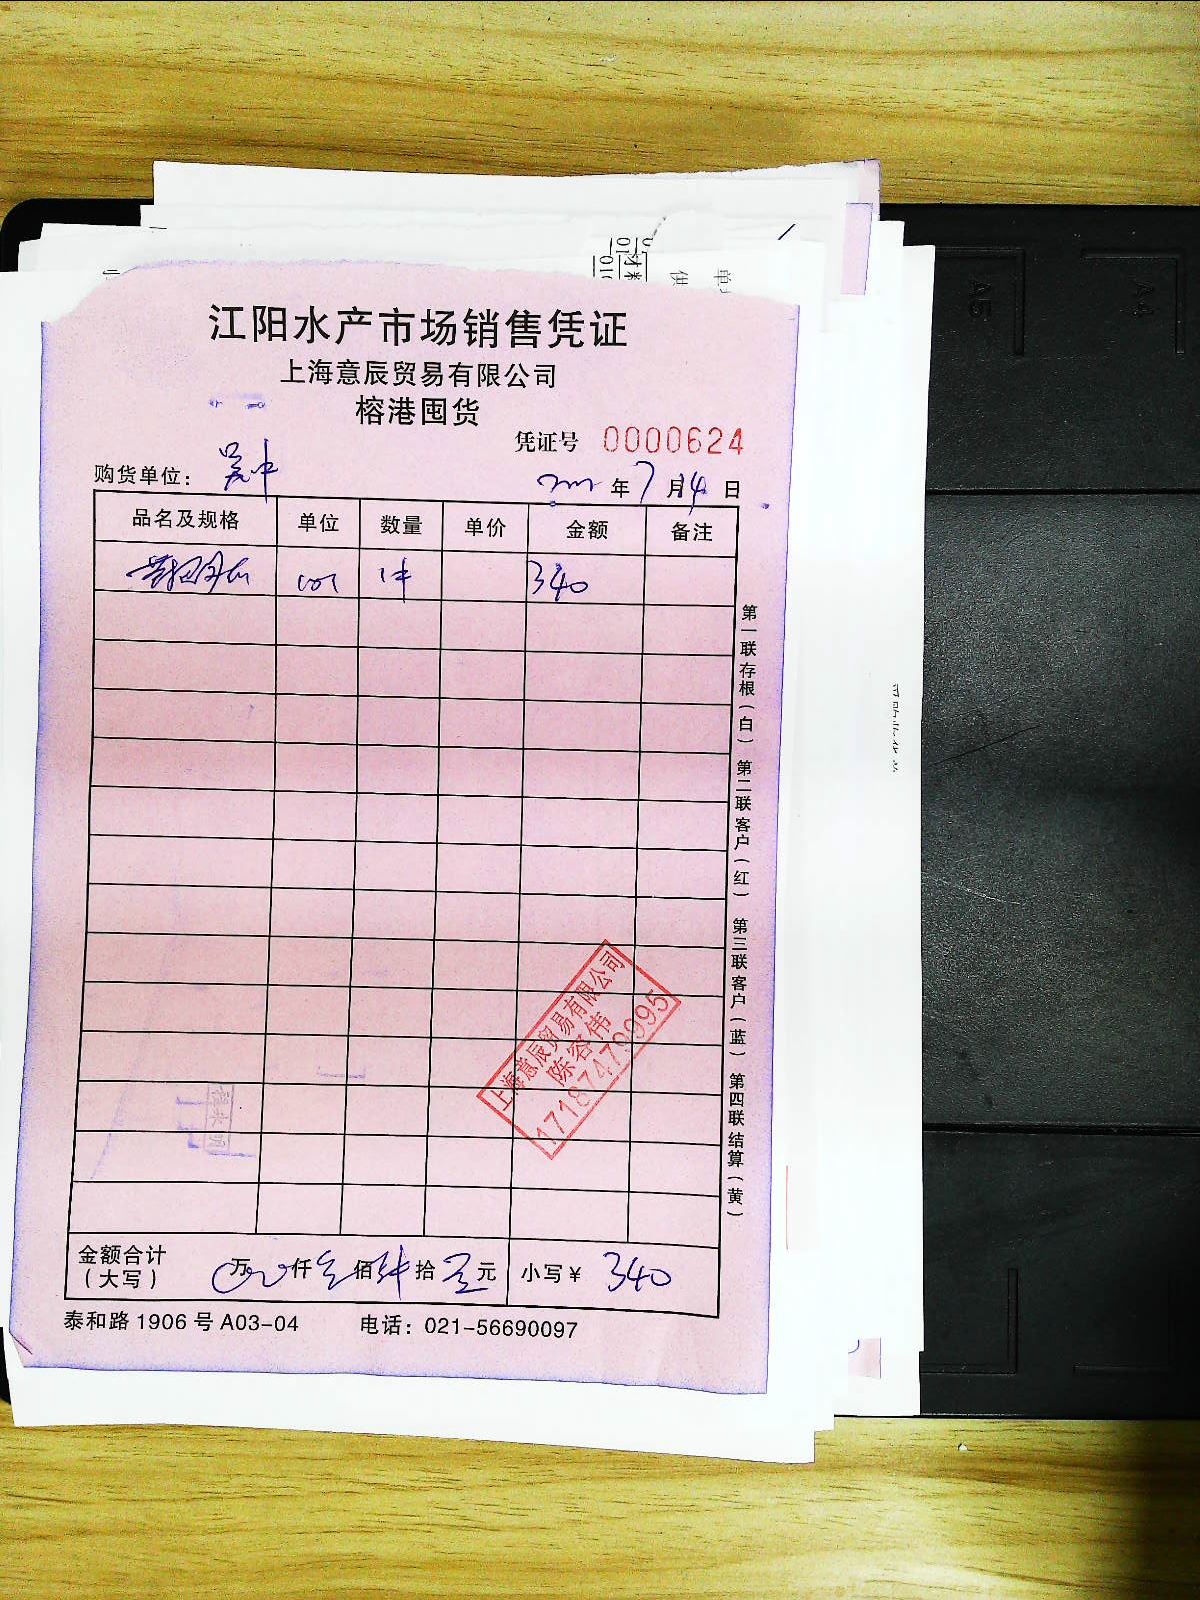 江阳水产市场销售凭证
上海意辰贸易有限公司
榕港囤货
凭证号 0000624
购货单位： 吴中 年7月14日
品名及规格 单位 数量 单价 金额 备注
1件 340
第一联存根（白） 第二联客户（红） 第三联客户（蓝） 第四联结算（黄）
上海意辰贸易有限公司
陈容伟
17187479995
金额合计（大写） 万 仟 佰 拾 元 小写￥ 340
泰和路 1906 号 A03-04 电话：021-56690097
A5
A4